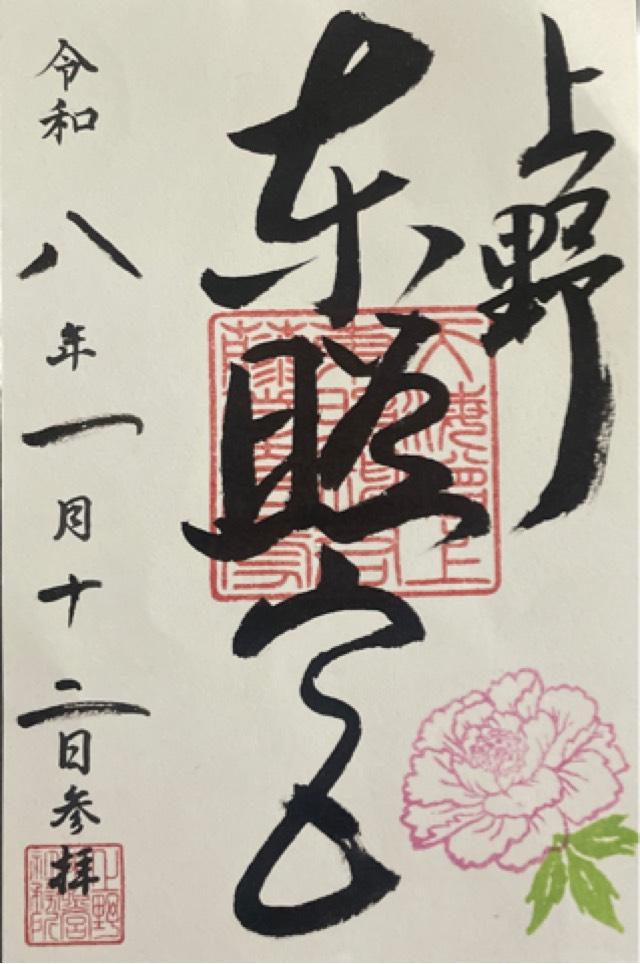 上野
東照宮
令和八年一月十二日参拝
上野東照宮社務所